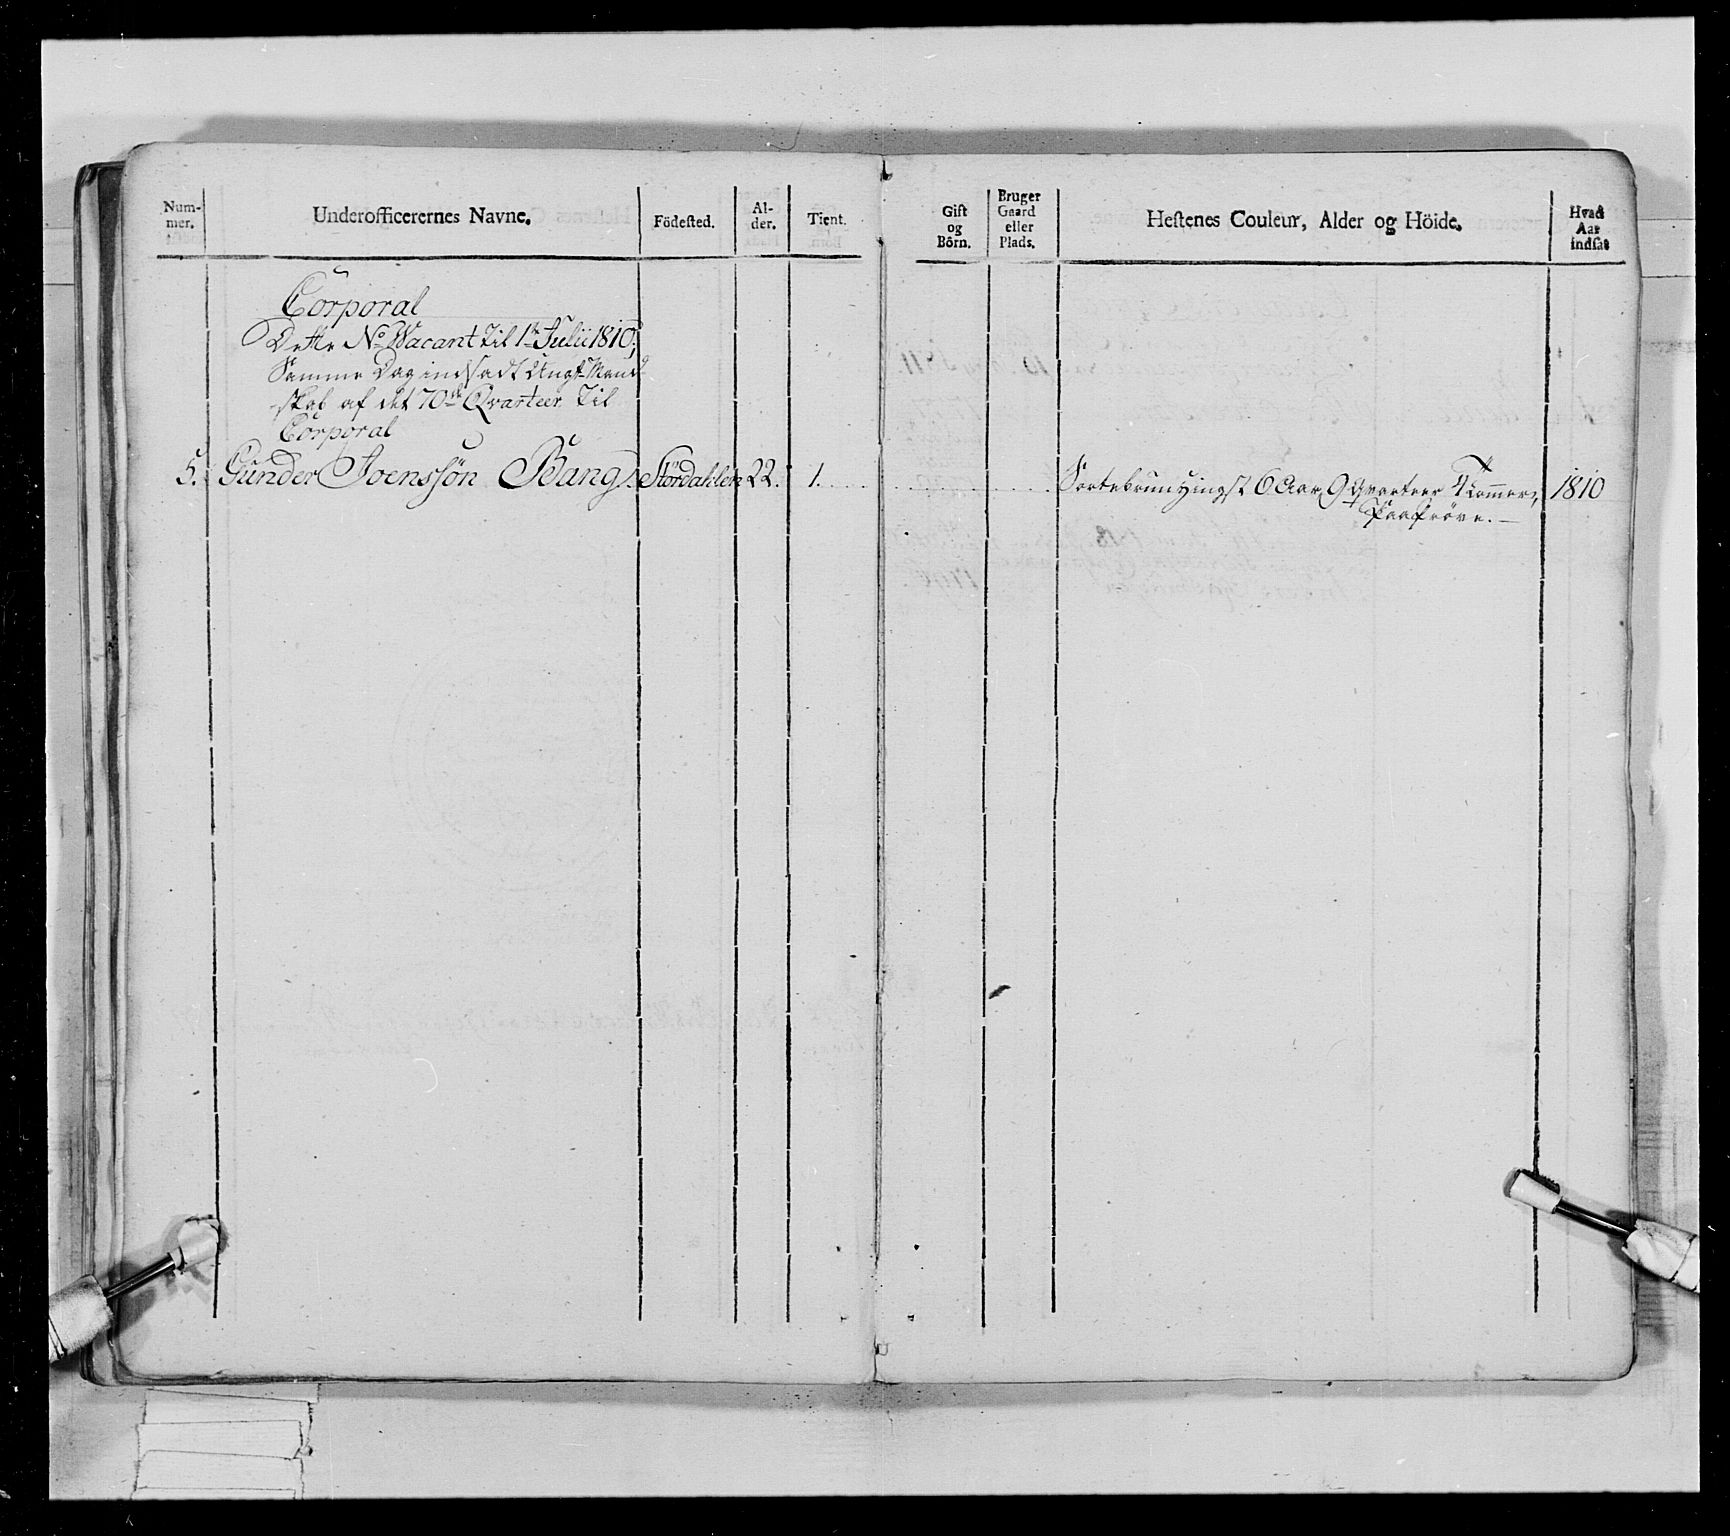 Num-
mer.
Underofficerernes Navne.
Födested.
Al-
der.
Tient.
Gift
og
Börn.
Bruger
Gaard
eller
Plads.
Hestenes Couleur, Alder og Höide.
Hvad
Aar
indsat
Corporal
Dette No Vacant til 1te Julii 1810;
Samme Dag indsadt Ungt Mand
skab af det 70de Qvarteer til
Corporal
5. Gunder Joenssön Bang. Stördahlen 22. 1. Sortebrun Hingst 6 Aar, 9 Qvarteer 1 Tommer, 1810
Paa Pröve.